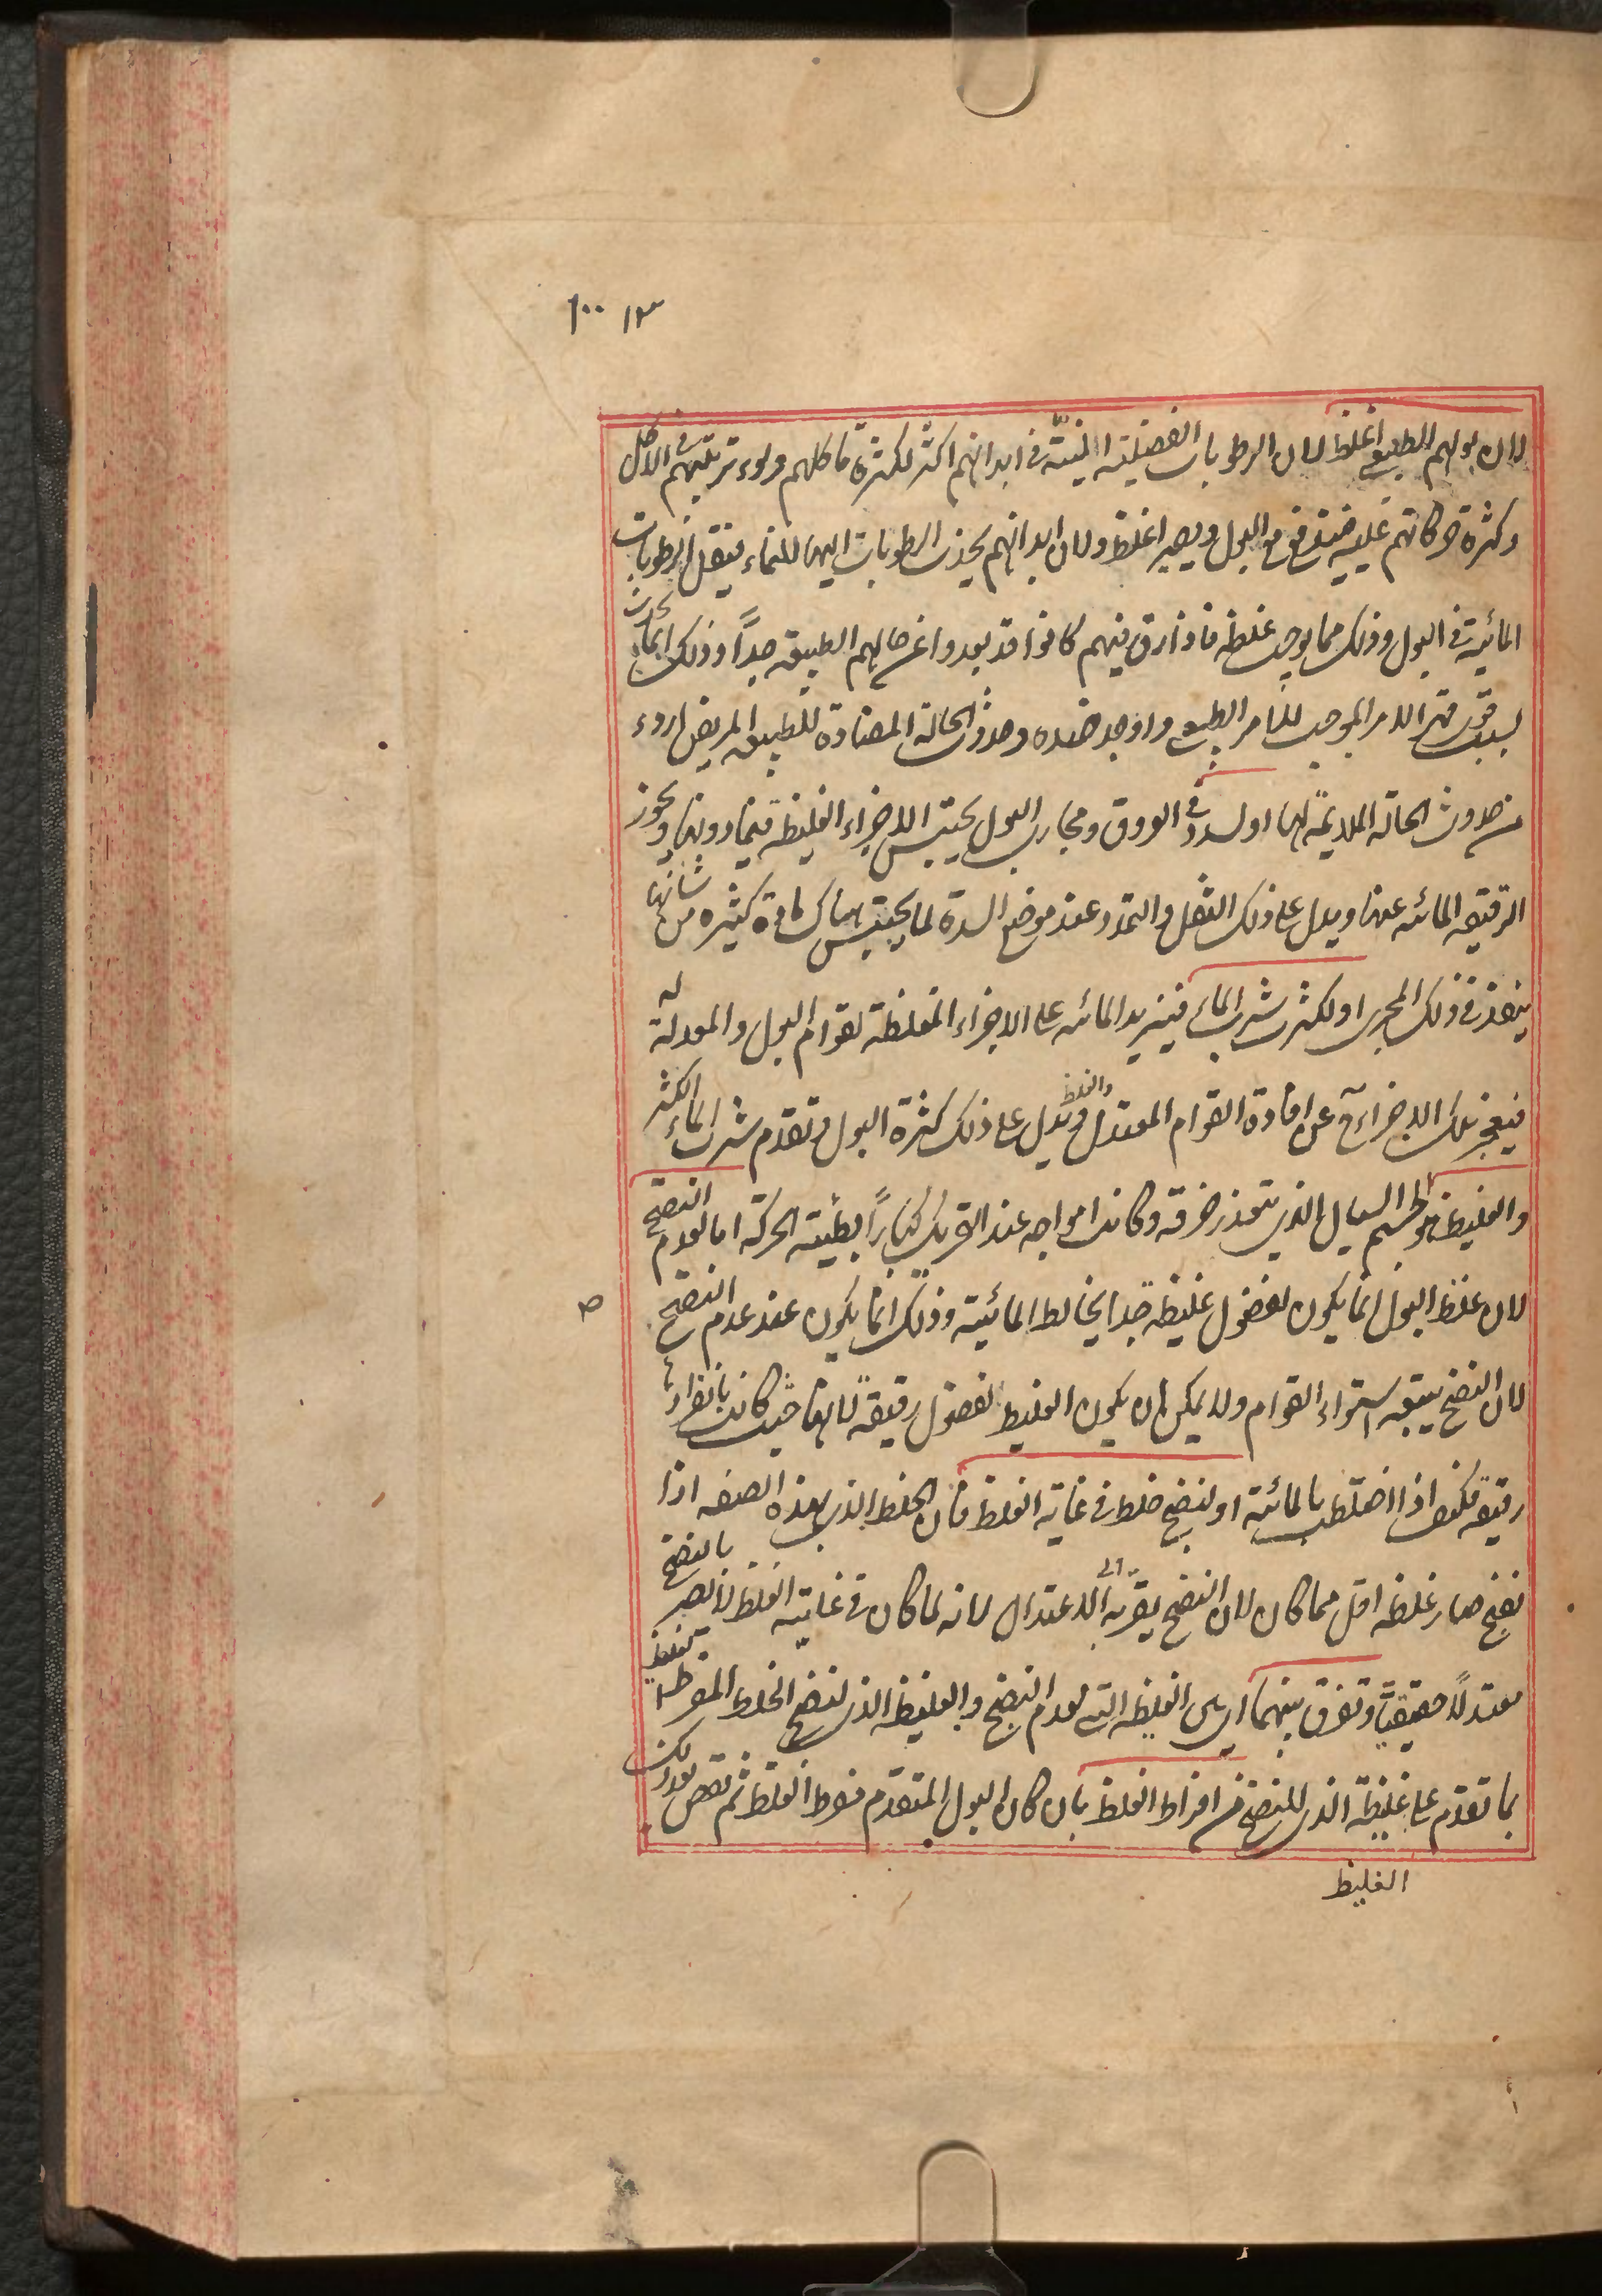 ١٠٠ ١٣
لان بولهم الطبيعي اغلظ لان الرطوبات الفضلية المنيّة في ابدانهم اكثر لكثرة ماكلهم وسوء ترتيبهم في الاكل
وكثرة حركاتهم عليه فيندفع مع البول ويصير اغلظ ولان ابدانهم يجذب الرطوبات اليها للنماء فيقل الرطوبات
المائية في البول وذلك مما يوجب غلظه فاذا رق فيهم كانوا قد بعدوا عن حالهم الطبيعية جدّاً وذلك انما يحدث
بسبب قوى قهر الامر الموجب للامر الطبيعي واوجد ضده وحدوث الحالة المضادة للطبيعية المريض اردء
من حدوث الحالة الملايمة لها او لسدد في العروق ومجارى البول يحتبس الاجزاء الغليظة فيما دونها ويجوز
الرقيقة المائية عنها ويدل على ذلك الثقل والتمدد عند موضع السدة لما يحتبس هناك مادة كثيرة من شانها
ينفذ في ذلك المجرى او لكثرت شرب الماء فيزيد المائية على الاجزاء المغلظة لقوام البول والمعدلة له
فيعجز تلك الاجزاء ح عن افادة القوام المعتدل والغلظ ويدل على ذلك كثرة البول وتقدم شرب الماء الكثير
والغليظ هو الجسم السيال الذي يتعذر خرقه وكانت امواجه عند التحريك كباراً بطيئة الحركة اما لعدم النضج
لان غلظ البول انما يكون لفضول غليظة جدا يخالط المائية وذلك انما يكون عند عدم النضج
لان النضج يتبعه استواء القوام ولا يمكن ان يكون الغليظ لفضول رقيقة لانها حيث كانت بانفرادها
رقيقة فكيف اذا اختلطت بالمائية او لنضج خلط في غاية الغلظ فان الخلط الذي بهذه الصفه اذا
نضج صار غلظه اقل مما كان لان النضج يقربه الى الاعتدال لانه لما كان في غاية الغلظ لا يصير بالنضج
معتدلاً حقيقيّاً وتفرق بينهما اى بين الغليظ التى لعدم النضج والغليظ الذي لنضج الخلط المفرط الغلظ
بما تقدم على غليظة الذي للنضج من افراط الغلظ بان كان البول المتقدم مفرط الغلظ ثم نقص بعد ذلك
الغليظ